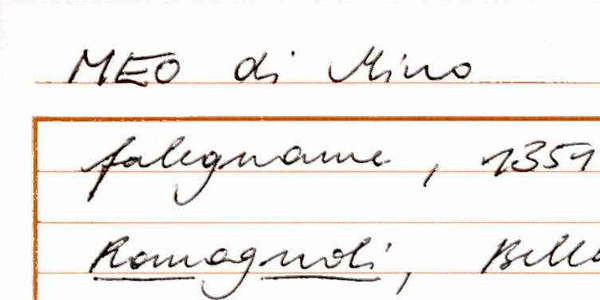 MEO di Mino
falegname, 1351
Romagnoli,